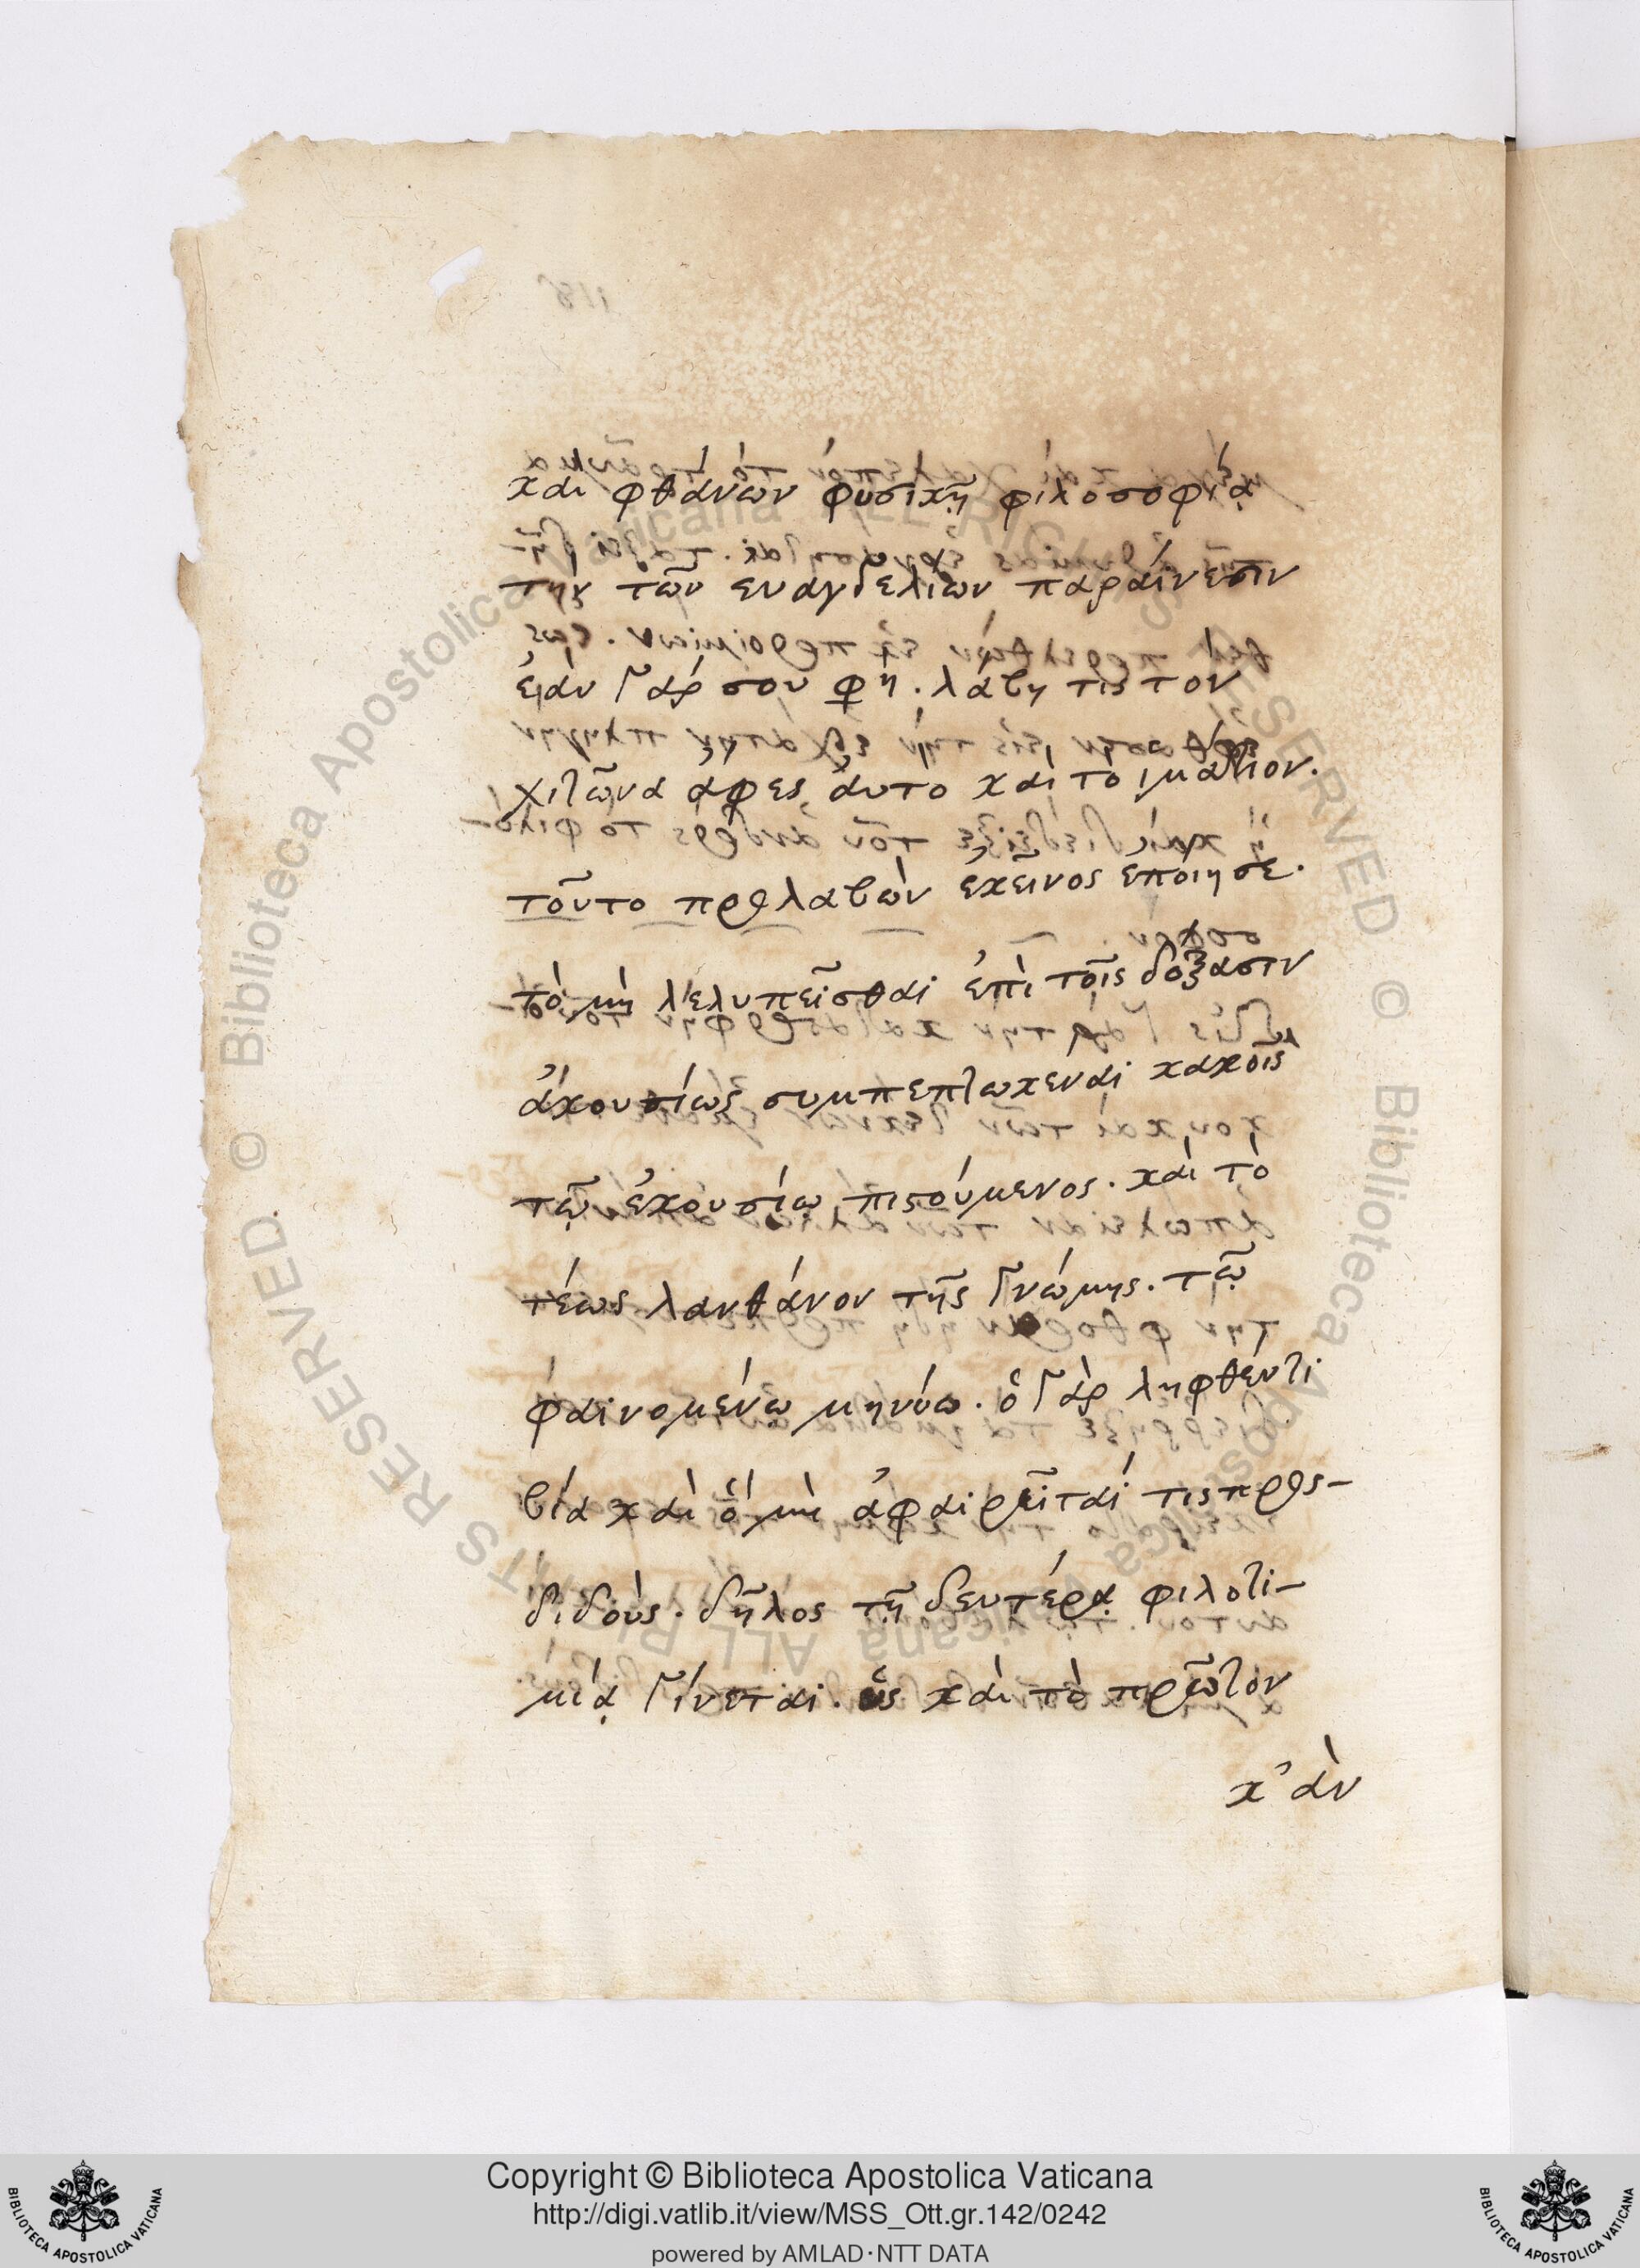 καὶ φθάνων φυσικῇ φιλοσοφίᾳ
τὴν τῶν ἐυαγγελίων παραίνεσιν
ἐὰν γάρ σου φη. λάβῃ τις τὸν
χιτῶνα ἄφες ἀυτο καὶ το ἱμάτιον.
τοῦτο προλαβὼν ἐκεῖνος ἐποίησε.
τὸ μὴ λελυπεῖσθαι ἐπὶ τοῖς δόξασιν
ἀκουσίως συμπεπτωκέναι κακοῖς
τῷ ἑκουσίῳ πιστούμενος. καὶ τὸ
τέως λανθάνον τῆς γνώμης. τῷ
φαινομένῳ μηνύω. ὁ γὰρ ληφθέντι
βία καὶ ὃ μὴ ἀφαιρεῖταί τις προς-
διδούς. δῆλος τῇ δευτέρᾳ φιλοτι-
μίᾳ γίνεται. ὡς καὶ τὸ πρῶτον
κ'ἀν
Copyright © Biblioteca Apostolica Vaticana
http://digi.vatlib.it/view/MSS_Ott.gr.142/0242
powered by AMLAD·NTT DATA
BIBLIOTECA APOSTOLICA VATICANA
BIBLIOTECA APOSTOLICA VATICANA